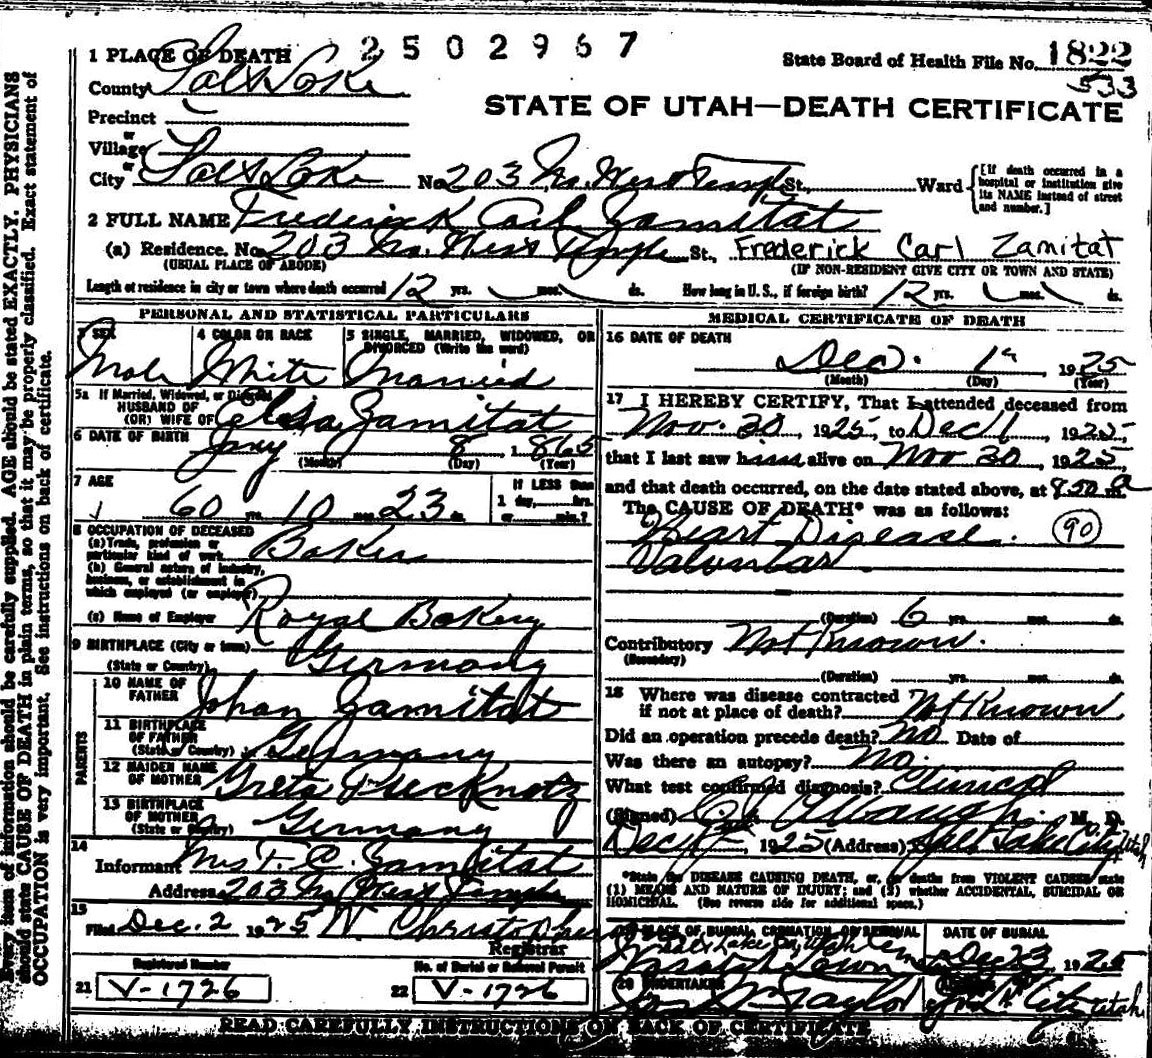 1 PLACE OF DEATH 2502967 State Board of Health File No. 1822
County Salt Lake 533
STATE OF UTAH—DEATH CERTIFICATE
Precinct
or
Village
or
City Salt Lake No. 203 No. West Temple St., Ward [If death occurred in a hospital or institution give its NAME instead of street and number.]
2 FULL NAME Frederick Carl Zamitat
(a) Residence. No. 203 No. West Temple St., Frederick Carl Zamitat
(USUAL PLACE OF ABODE) (IF NON-RESIDENT GIVE CITY OR TOWN AND STATE)
Length of residence in city or town where death occurred 12 yrs. mos. ds. How long in U. S., if foreign birth? 12 yrs. mos. ds.
PERSONAL AND STATISTICAL PARTICULARS
3 SEX 4 COLOR OR RACE 5 SINGLE, MARRIED, WIDOWED, OR DIVORCED (Write the word)
Male White Married
5a If Married, Widowed, or Divorced
HUSBAND OF
(OR) WIFE OF Zamitat
6 DATE OF BIRTH 8 1865
(Month) (Day) (Year)
7 AGE IF LESS than
60 yrs. 10 mos. 23 ds. 1 day, hrs.
or min.?
8 OCCUPATION OF DECEASED
(a) Trade, profession or
particular kind of work Baker
(b) General nature of industry,
business, or establishment in
which employed (or employer)
(c) Name of Employer Royal Bakery
9 BIRTHPLACE (City or town)
(State or Country) Germany
PARENTS
10 NAME OF
FATHER Johan Zamitat
11 BIRTHPLACE
OF FATHER
(State or Country) Germany
12 MAIDEN NAME
OF MOTHER Greta
13 BIRTHPLACE
OF MOTHER
(State or Country) Germany
14
Informant Mrs F. C. Zamitat
Address 203 No West Temple
15
Filed Dec. 2 1925 W. Christopherson
Registrar
Registered Number No. of Burial or Removal Permit
21 V-1726 22 V-1726
MEDICAL CERTIFICATE OF DEATH
16 DATE OF DEATH
Dec. 1 1925
(Month) (Day) (Year)
17 I HEREBY CERTIFY, That I attended deceased from
Nov. 30, 1925, to Dec 1, 1925,
that I last saw him alive on Nov 30, 1925,
and that death occurred, on the date stated above, at 850 a m.
The CAUSE OF DEATH* was as follows:
Heart Disease. 90
Valvular
(Duration) 6 yrs. mos. ds.
Contributory Not Known.
(Secondary)
(Duration) yrs. mos. ds.
18 Where was disease contracted
if not at place of death? Not Known
Did an operation precede death? No Date of
Was there an autopsy? No.
What test confirmed diagnosis? Clinical
(Signed) M. D.
Dec 1925 (Address) Salt Lake City Utah
*State the DISEASE CAUSING DEATH, or, in deaths from VIOLENT CAUSES state
(1) MEANS AND NATURE OF INJURY; and (2) whether ACCIDENTAL, SUICIDAL OR
HOMICIDAL. (See reverse side for additional space.)
19 PLACE OF BURIAL, CREMATION, OR REMOVAL DATE OF BURIAL
Salt Lake City, Utah
Wasatch Lawn Dec 3 1925
20 UNDERTAKER
Taylor City Utah
READ CAREFULLY INSTRUCTIONS ON BACK OF CERTIFICATE
Every item of information should be carefully supplied. AGE should be stated EXACTLY. PHYSICIANS
should state CAUSE OF DEATH in plain terms, so that it may be properly classified. Exact statement of
OCCUPATION is very important. See instructions on back of certificate.